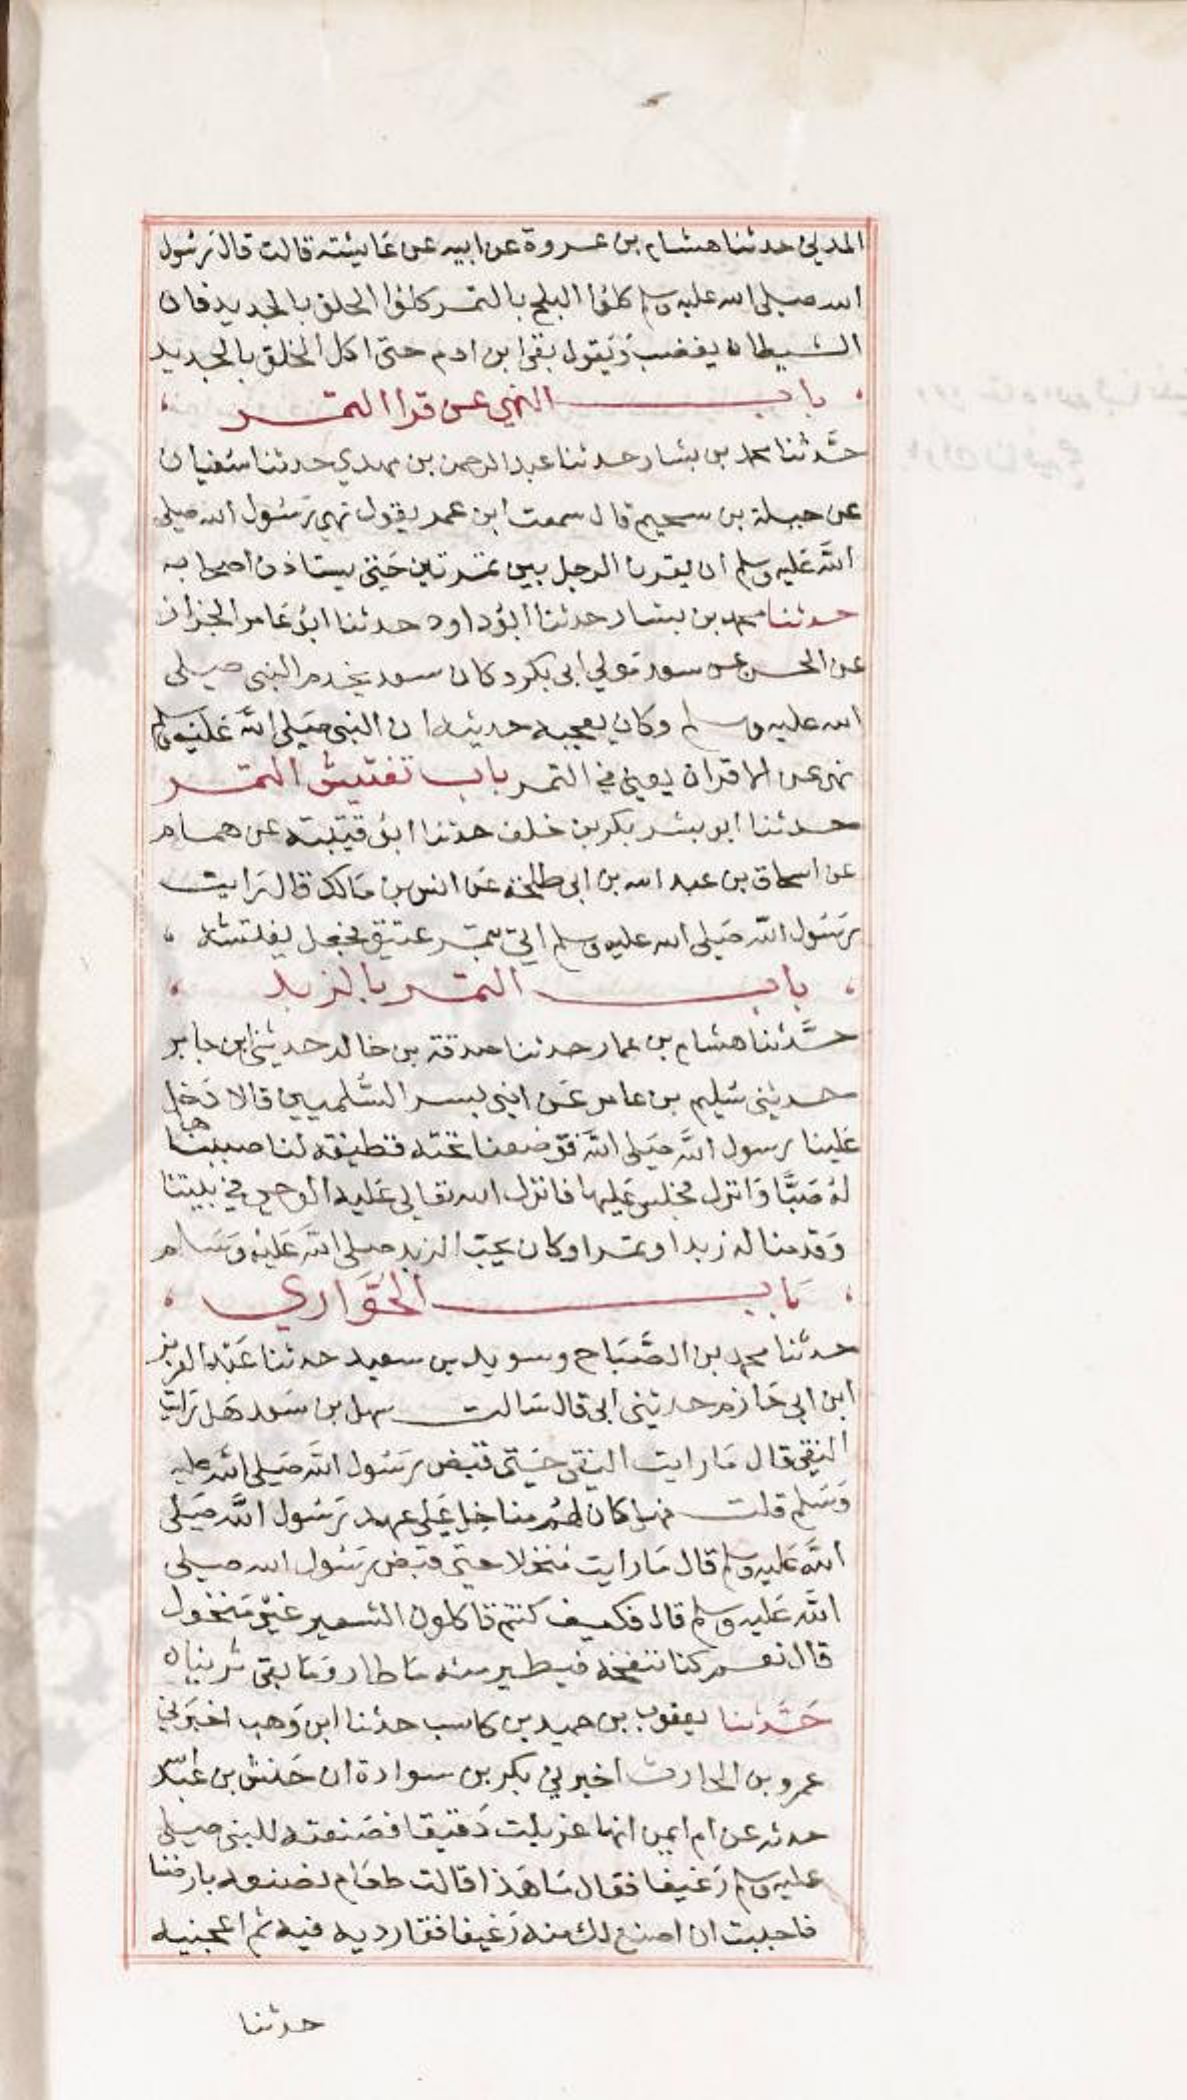 المدني حدثنا هشام بن عروة عن ابيه عن عائشة قالت قال رسول
الله صلى الله عليه وسلم كلوا البلح بالتمر كلوا الخلق بالجديد فان
الشيطان يغضب ويقول بقي ابن ادم حتى اكل الخلق بالجديد
باب النهي عن قرا التمر
حدثنا محمد بن بشار حدثنا عبد الرحمن بن مهدي حدثنا سفيان
عن جبلة بن سحيم قال سمعت ابن عمر يقول نهى رسول الله صلى
الله عليه وسلم ان يقرن الرجل بين تمرتين حتى يستاذن اصحابه
حدثنا محمد بن بشار حدثنا ابو داود حدثنا ابو عامر الخزاز
عن الحسن عن سعد مولي ابى بكر وكان سعد يخدم النبى صلى
الله عليه وسلم وكان يعجبه حديثه ان النبى صلى الله عليه وسلم
نهى عن الاقران يعني في التمر باب تفتيش التمر
حدثنا ابو بشر بكر بن خلف حدثنا ابو قتيبة عن همام
عن اسحاق بن عبد الله بن ابى طلحة عن انس بن مالك قال رايت
رسول الله صلى الله عليه وسلم اتى بتمر عتيق فجعل يفتشه
باب التمر بالزبد
حدثنا هشام بن عمار حدثنا صدقة بن خالد حدثني ابن جابر
حدثني سليم بن عامر عن ابنى بسر السلميين قالا دخل
علينا رسول الله صلى الله فوضعنا تحته قطيفة لنا صببناها
له صبا وانزل فجلس عليها فانزل الله تعالى عليه الوحي في بيتنا
وقدمنا له زبدا وتمرا وكان يحب الزبد صلى الله عليه وسلم
باب الحواري
حدثنا محمد بن الصباح وسويد بن سعيد حدثنا عبد العزيز
ابن ابي حازم حدثنى ابى قال سالت سهل بن سعد هل رايت
النقي قال ما رايت النقي حتى قبض رسول الله صلى الله عليه
وسلم قلت فهل كان لهم مناخل على عهد رسول الله صلى
الله عليه وسلم قال ما رايت منخلا حتى قبض رسول الله صلى
الله عليه وسلم قال فكيف كنتم تاكلون الشعير غير منخول
قال نعم كنا ننفخه فيطير منه ما طار وما بقي ثريناه
حدثنا يعقوب بن حميد بن كاسب حدثنا ابن وهب اخبرني
عمرو بن الحارث اخبرني بكر بن سوادة ان حنش بن عبد الله
حدثه عن ام ايمن انها غربلت دقيقا فصنعته للنبى صلى
عليه وسلم رغيفا فقال ما هذا قالت طعام نصنعه بارضنا
فاحببت ان اصنع لك منه رغيفا فقا رديه فيه ثم اعجنيه
حدثنا